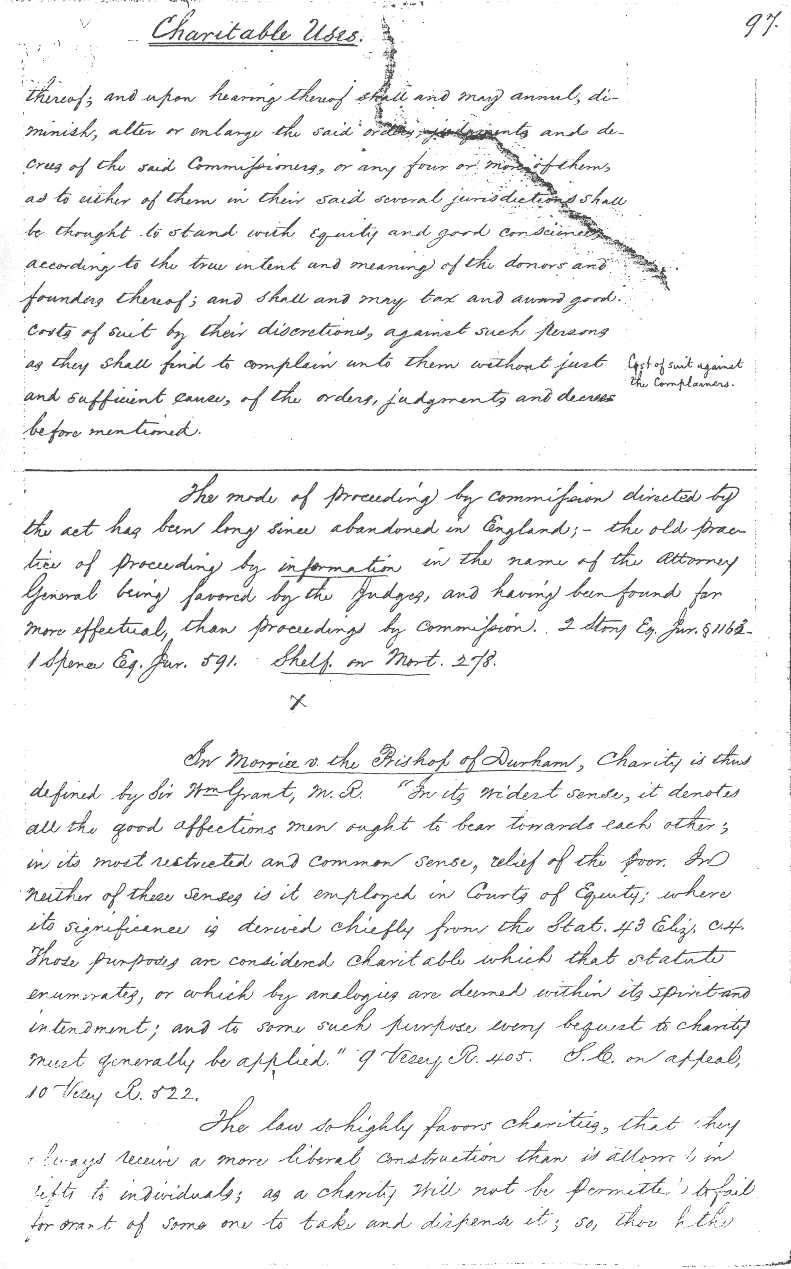 Charitable Uses.
97.
thereof; and upon hearing thereof shall and may annul, di-
minish, alter or enlarge the said orders, judgments and de-
crees of the said Commissioners, or any four or more of them,
as to either of them in their said several jurisdictions shall
be thought to stand with Equity and good conscience,
according to the true intent and meaning of the donors and
founders thereof; and shall and may tax and award good
costs of suit by their discretions, against such persons
as they shall find to complain unto them without just
and sufficient cause, of the orders, judgments and decrees
before mentioned.
Cost of suit against
the Complainers.
The mode of proceeding by commission directed by
the act has been long since abandoned in England;- the old prac-
tice of proceeding by information in the name of the Attorney
General being favored by the Judges, and having been found far
more effectual, than proceedings by commission. 2 Story Eq. Jur. § 1163-
1 Spence Eq. Jur. 591. Shelf. on Mort. 278.
X
In Morrice v. the Bishop of Durham, Charity is thus
defined by Sir Wm Grant, M.R. "In its widest sense, it denotes
all the good affections men ought to bear towards each other;
in its most restricted and common sense, relief of the poor. In
neither of these senses is it employed in Courts of Equity; where
its significance is derived chiefly from the Stat. 43 Eliz. c.4.
Those purposes are considered charitable which that statute
enumerates, or which by analogies are deemed within its spirit and
intendment; and to some such purpose every bequest to charity
must generally be applied." 9 Vesey R. 405. S.C. on appeal,
10 Vesey R. 522.
The law so highly favors charities, that they
always receive a more liberal construction than is allowed in
gifts to individuals; as a charity will not be permitted to fail
for want of some one to take and dispense it; so, though the